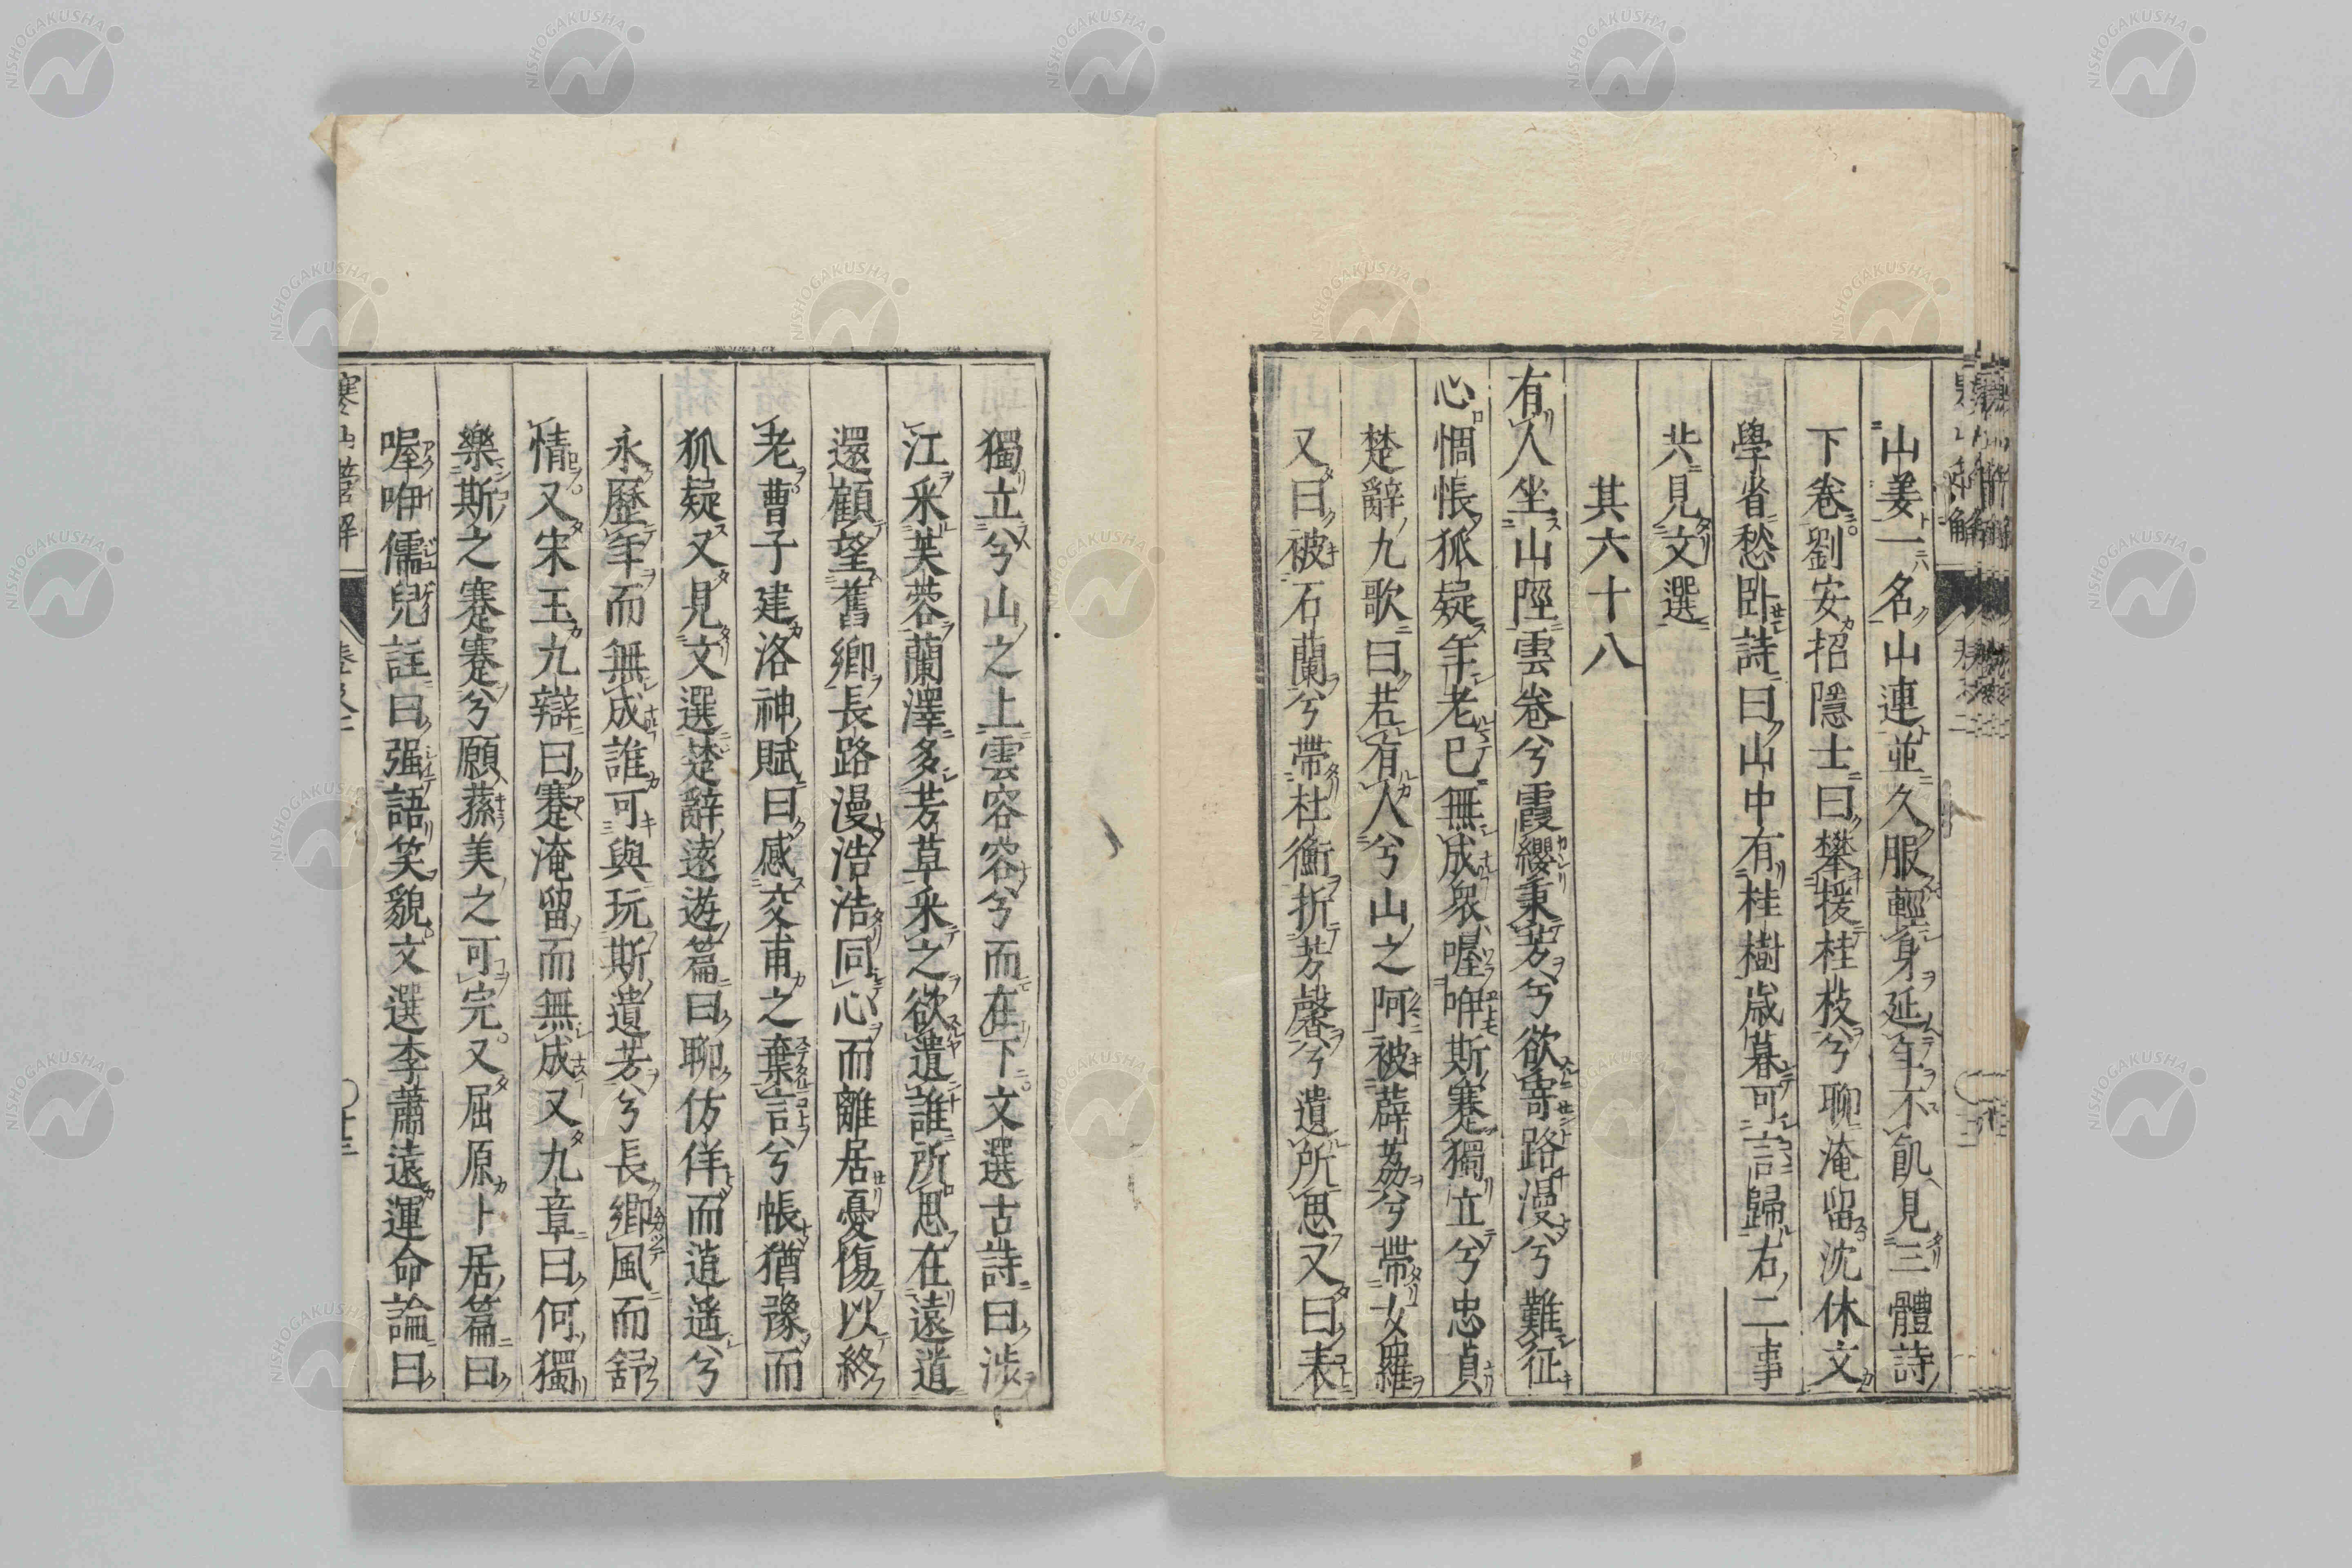 山姜一名山連並久服輕身延年不飢見三體詩
下卷劉安招隱士曰攀援桂枝兮聊淹留沈休文
學省愁臥詩曰山中有桂樹歲暮可言歸右二事
共見文選
其六十八
有人坐山陘雲卷兮霞纓秉芳兮欲寄路漫兮難征
心惆悵狐疑年老已無成衆喔咿斯蹇獨立兮忠貞
楚辭九歌曰若有人兮山之阿被薜荔兮帶女羅
又曰被石蘭兮帶杜衡折芳馨兮遺所思又曰表
獨立兮山之上雲容容兮而在下文選古詩曰涉
江采芙蓉蘭澤多芳草采之欲遺誰所思在遠道
還顧望舊鄉長路漫浩浩同心而離居憂傷以終
老曹子建洛神賦曰感交甫之棄言兮悵猶豫而
狐疑又見文選楚辭遠遊篇曰聊仿佯而逍遙兮
永歷年而無成誰可與玩斯遺芳兮長鄉風而舒
情又宋玉九辯曰蹇淹留而無成又九章曰何獨
樂斯之蹇蹇兮願蓀美之可完又屈原卜居篇曰
喔咿儒兒註曰强語笑貌文選李蕭遠運命論曰